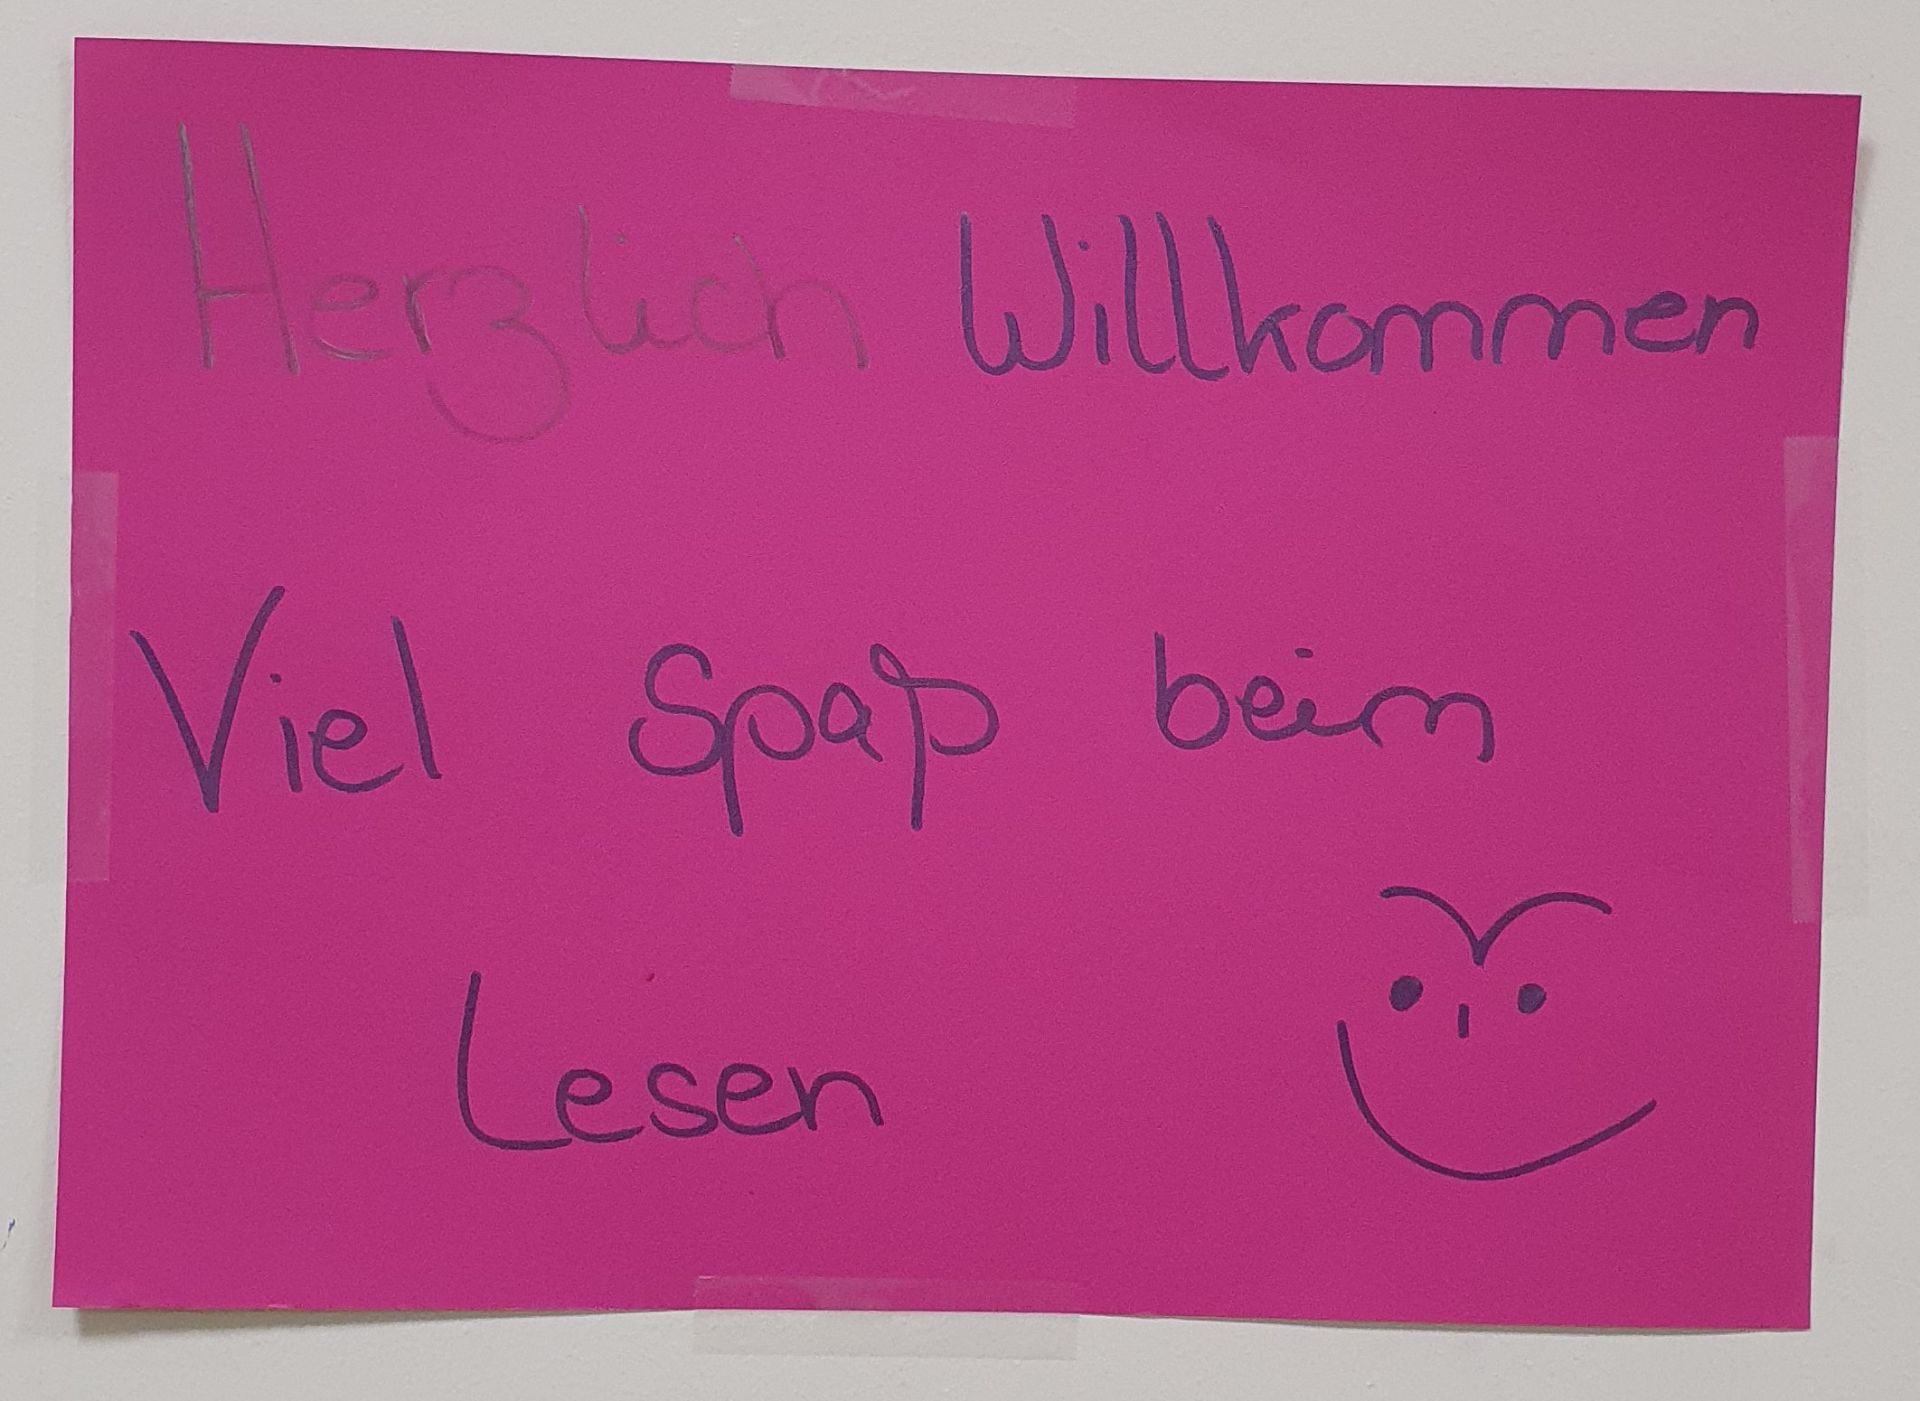 Herzlich Willkommen
Viel Spaß beim
Lesen